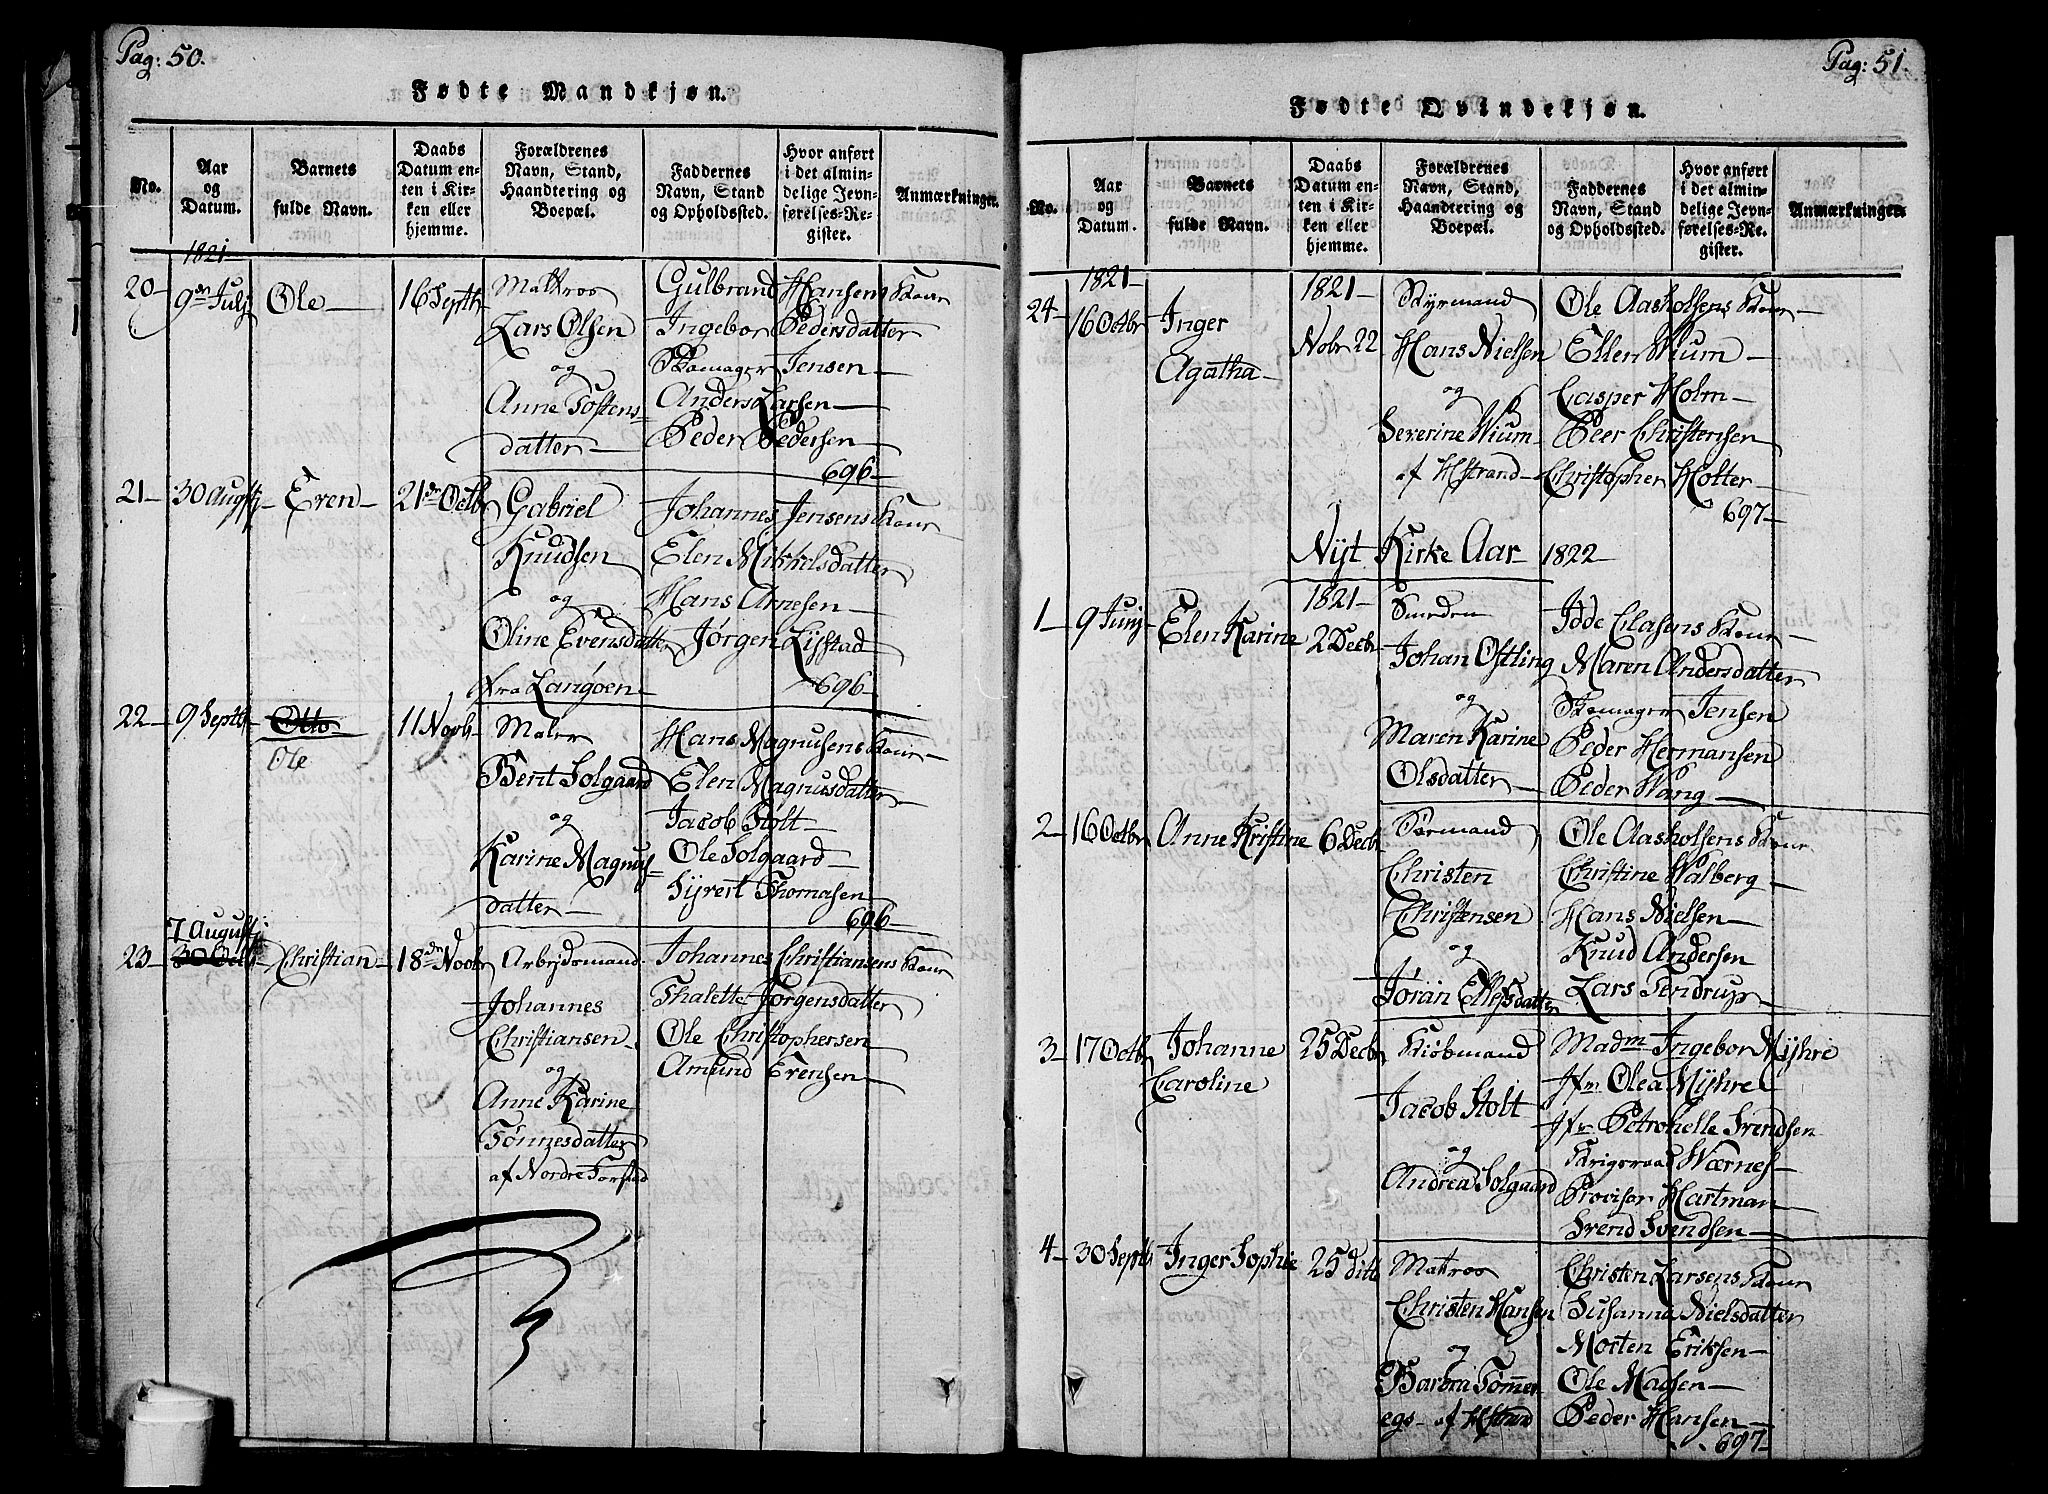 Pag: 50.
Fødte Mandkjøn.
No.
Aar
og
Datum.
Barnets
fulde Navn.
Daabs
Datum en-
ten i Kir-
ken eller
hjemme.
Forældrenes
Navn, Stand,
Haandtering og
Boepæl.
Faddernes
Navn, Stand
og Opholdssted.
Hvor anført
i det almin-
delige Jevn-
førelses-Re-
gister.
Anmærkninger.
1821-
20- 9de Julj Ole- 16 Septbr
Mattros
Lars Olsen
og
Anne Tostens-
datter-
Gulbrand Hansens Kone
Ingebor Pedersdatter
Skomager Jensen
Anders Larsen-
Peder Pedersen
696-
21- 30 Augstj Even- 21de Octbr
Gabriel
Knudsen
og
Oline Evensdatter
fra Langøen-
Johannes Jensens Kone
Elen Mikkelsdatter
Hans Arnesen-
Jørgen Lijstad
696-
22- 9 Septbr Otto- 11 Novb-
Ole
Maler
Bent Solgaard
og
Karine Magnus-
datter-
Hans Magnusens Kone-
Elen Magnusdatter
Jacob Stolt-
Ole Solgaard-
Syvert Thomasen
696-
7 August
23- 30 Octb- Christian- 18de Novbr
Arbejdsmand
Johannes
Christiansen-
og
Anne Karine
Tönnesdatter
af Nordre Torstad
Johannes Christiansens Kone
Thalette Jorgensdatter
Ole Christophersen-
Amund Evensen-
Pag: 51.
Fødte Qvindekjøn.
No.
Aar
og
Datum.
Barnets
fulde Navn.
Daabs
Datum en-
ten i Kir-
ken eller
hjemme.
Forældrenes
Navn, Stand,
Haandtering og
Boepæl.
Faddernes
Navn, Stand
og Opholdssted.
Hvor anført
i det almin-
delige Jevn-
førelses-Re-
gister.
Anmærkninger.
1821- 1821-
24- 16 Octbr Inger
Agatha-
Nobr 22
Styrmand
Hans Nielsen
og
Severine Wium-
af Hstrand-
Ole Aasholsens Kone-
Ellen Wium-
Casper Holm-
Peer Christensen
Christopher Holter
697-
Nyt Kirke Aar 1822-
1821-
1- 9 Junj- Elen Karine 2 Decbr
Smeden
Johan Ostling
og
Maren Karine
Olsdatter-
Idde Clasens Kone-
Maren Andersdatter
Skomager Jensen
Peder Hermansen
Peder Wang-
2- 16 Octbr Anne Kristine 6 Decbr
Sørmand
Christen
Christensen
og
Jøran
Ole Aasholsens Kone
Christine Walberg-
Hans Nielsen-
Knud Andersen
Lars Tendrup-
3- 17 Octbr Johanne 25 Decbr
Caroline
Kiöbmand
Jacob Stolt
og
Andrea Solgaard
Madm Ingebor Myhre
Jfr Olea Myhre-
Jfr Petronelle Svendsen
Krigsraad Wærnes-
Provisor Hartman-
Svend Svendsen-
4- 30 Septb Inger Sophie 25 ditto
Mattros
Christen Hansen
og
Barbra Tömmer
egs- af Hstrand
Christen Larsens Kone
Susanna Nielsdatter
Morten Eriksen-
Ole Madsen-
Peder Hansen-
697-